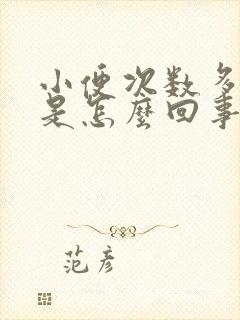 小便次数多
是怎麼回事
范彦